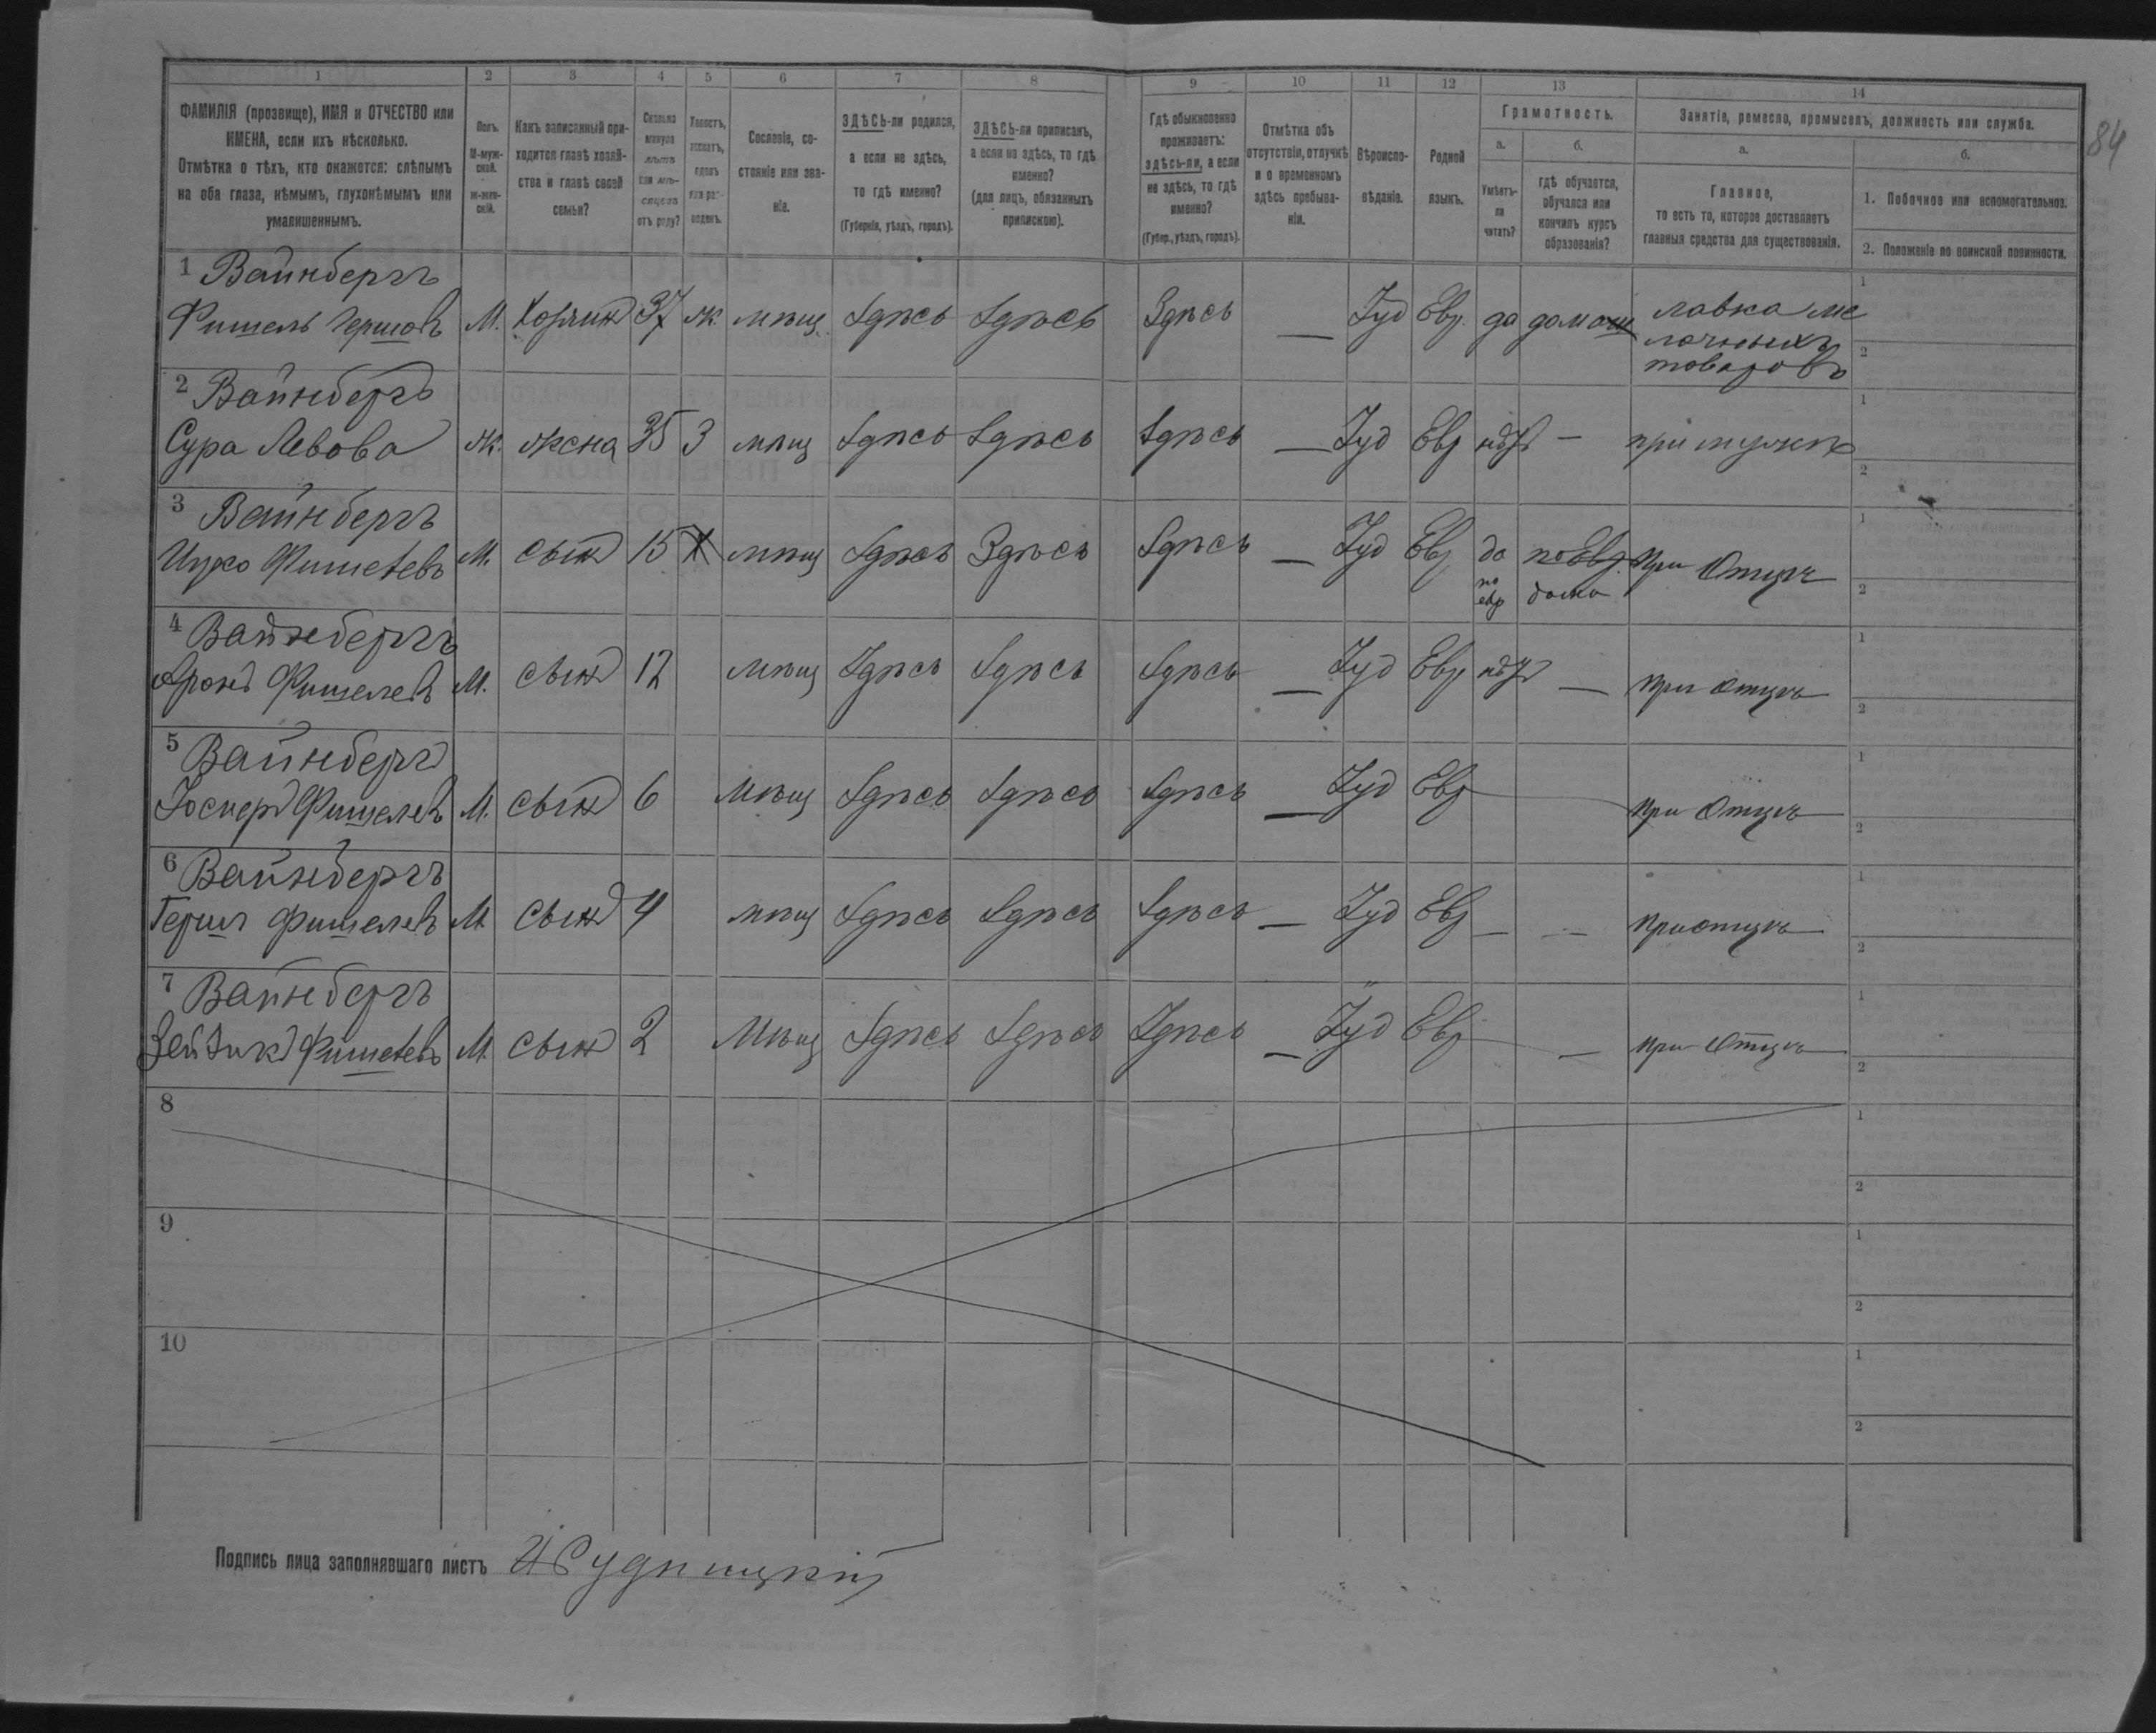 84
1 2 3 4 5 6 7 8 9 10 11 12 13 14
ФАМИЛІЯ (прозвище), ИМЯ и ОТЧЕСТВО или ИМЕНА, если ихъ нѣсколько.
Отмѣтка о тѣхъ, кто окажется: слѣпымъ на оба глаза, нѣмымъ, глухонѣмымъ или умалишеннымъ.
Полъ. М-мужской. ж-женскій.
Какъ записанный приходится главѣ хозяйства и главѣ своей семьи?
Сколько минуло лѣтъ или мѣсяцевъ отъ роду?
Холостъ, женатъ, вдовъ или разведенъ.
Сословіе, состояніе или званіе.
ЗДѢСЬ-ли родился, а если не здѣсь, то гдѣ именно?
(Губернія, уѣздъ, городъ).
ЗДѢСЬ-ли приписанъ, а если не здѣсь, то гдѣ именно?
(для лицъ, обязанныхъ припискою).
Гдѣ обыкновенно проживаетъ: здѣсь-ли, а если не здѣсь, то гдѣ именно?
(Губер., уѣздъ, городъ).
Отмѣтка объ отсутствіи, отлучкѣ и о временномъ здѣсь пребываніи.
Вѣроисповѣданіе.
Родной языкъ.
Грамотность.
а. Умѣетъ-ли читать?
б. гдѣ обучается, обучался или кончилъ курсъ образованія?
Занятіе, ремесло, промыселъ, должность или служба.
а. Главное, то есть то, которое доставляетъ главныя средства для существованія.
б.
1. Побочное или вспомогательное.
2. Положеніе по воинской повинности.
1 Вайнбергъ
Фишель Гершовъ М. Хозяинъ 37 ж. мѣщ. Здѣсь Здѣсь Здѣсь — Іуд Евр. да домащ лавка ме
лочныхъ
товаровъ
2 Вайнбергъ
Сура Левова ж. жена 35 З мѣщ Здѣсь Здѣсь Здѣсь — Іуд Евр нѣтъ — при мужѣ
3 Вайнбергъ
Ицко Фишелевъ М. сынъ 15 Х мѣщ Здѣсь Здѣсь Здѣсь — Іуд Евр да по Евр. При Отцѣ
по евр дома
4 Вайнбергъ
Аронъ Фишелевъ М. сынъ 12 мѣщ Здѣсь Здѣсь Здѣсь — Іуд Евр нѣтъ — При Отцѣ
5 Вайнбергъ
Фишелевъ М. сынъ 6 мѣщ Здѣсь Здѣсь Здѣсь — Іуд Евр При Отцѣ
6 Вайнбергъ
Гершъ Фишелевъ М сынъ 4 мѣщ Здѣсь Здѣсь Здѣсь — Іуд Евр — — При отцѣ
7 Вайнбергъ
Фишелевъ М. сынъ 2 Мѣщ Здѣсь Здѣсь Здѣсь — Іуд Евр — При Отцѣ
8
9
10
Подпись лица заполнявшаго листъ